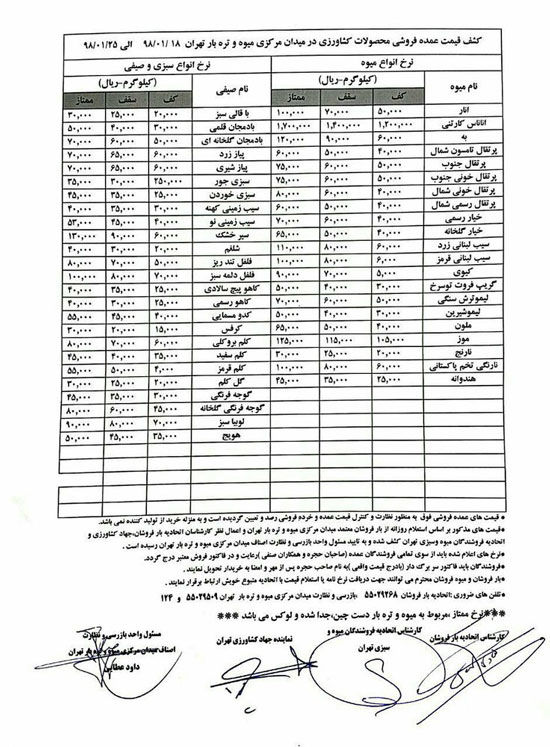 کشف قیمت عمده فروشی محصولات کشاورزی در میدان مرکزی میوه و تره بار تهران ۹۸/۰۱/۱۸ الی ۹۸/۰۱/۲۵
نرخ انواع میوه نرخ انواع سبزی و صیفی
نام میوه (کیلوگرم-ریال) نام صیفی (کیلوگرم-ریال)
کف سقف ممتاز کف سقف ممتاز
انار ۵۰,۰۰۰ ۷۰,۰۰۰ ۱۰۰,۰۰۰ باقالی سبز ۲۰,۰۰۰ ۲۵,۰۰۰ ۳۰,۰۰۰
آناناس کارتنی ۱,۲۰۰,۰۰۰ ۱,۴۰۰,۰۰۰ ۱,۷۰۰,۰۰۰ بادمجان قلمی ۳۰,۰۰۰ ۴۰,۰۰۰ ۵۰,۰۰۰
به ۶۰,۰۰۰ ۹۰,۰۰۰ ۱۲۰,۰۰۰ بادمجان گلخانه ای ۵۰,۰۰۰ ۶۰,۰۰۰ ۷۰,۰۰۰
پرتقال تامسون شمال ۴۰,۰۰۰ ۵۰,۰۰۰ ۶۰,۰۰۰ پیاز زرد ۶۰,۰۰۰ ۶۵,۰۰۰ ۷۰,۰۰۰
پرتقال جنوب ۵۰,۰۰۰ ۶۰,۰۰۰ ۷۵,۰۰۰ پیاز شیری ۶۰,۰۰۰ ۶۵,۰۰۰ ۷۰,۰۰۰
پرتقال خونی جنوب ۵۰,۰۰۰ ۶۰,۰۰۰ ۷۵,۰۰۰ سبزی جور ۲۵۰,۰۰۰ ۳۰,۰۰۰ ۳۵,۰۰۰
پرتقال خونی شمال ۴۰,۰۰۰ ۶۰,۰۰۰ ۸۰,۰۰۰ سبزی خوردن ۲۵,۰۰۰ ۳۵,۰۰۰ ۴۵,۰۰۰
پرتقال رسمی شمال ۴۰,۰۰۰ ۵۰,۰۰۰ ۶۰,۰۰۰ سیب زمینی کهنه ۳۰,۰۰۰ ۳۵,۰۰۰ ۴۰,۰۰۰
خیار رسمی ۴۰,۰۰۰ ۶۰,۰۰۰ ۷۰,۰۰۰ سیب زمینی نو ۴۰,۰۰۰ ۴۵,۰۰۰ ۵۳,۰۰۰
خیار گلخانه ۴۰,۰۰۰ ۵۰,۰۰۰ ۶۵,۰۰۰ سیر خشک ۶۰,۰۰۰ ۹۰,۰۰۰ ۱۳۰,۰۰۰
سیب لبنانی زرد ۶۰,۰۰۰ ۸۰,۰۰۰ ۱۱۰,۰۰۰ شلغم ۲۰,۰۰۰ ۳۰,۰۰۰ ۴۰,۰۰۰
سیب لبنانی قرمز ۶,۰۰۰ ۸۰,۰۰۰ ۱۰۰,۰۰۰ فلفل تند ریز ۵۰,۰۰۰ ۷۰,۰۰۰ ۸۰,۰۰۰
کیوی ۵,۰۰۰ ۷۰,۰۰۰ ۹۰,۰۰۰ فلفل دلمه سبز ۷۰,۰۰۰ ۸۰,۰۰۰ ۱۰۰,۰۰۰
گریپ فروت توسرخ ۳۰,۰۰۰ ۴۰,۰۰۰ ۵۰,۰۰۰ کاهو پیچ سالادی ۲۵,۰۰۰ ۳۵,۰۰۰ ۴۰,۰۰۰
لیموترش سنگی ۵۰,۰۰۰ ۶۰,۰۰۰ ۷۰,۰۰۰ کاهو رسمی ۲۵,۰۰۰ ۳۰,۰۰۰ ۴۰,۰۰۰
لیموشیرین ۳۰,۰۰۰ ۴۰,۰۰۰ ۵۰,۰۰۰ کدو مسمایی ۴۰,۰۰۰ ۴۵,۰۰۰ ۵۵,۰۰۰
ملون ۴۰,۰۰۰ ۵۰,۰۰۰ ۶۵,۰۰۰ کرفس ۱۵,۰۰۰ ۲۰,۰۰۰ ۳۰,۰۰۰
موز ۱۰۵,۰۰۰ ۱۱۵,۰۰۰ ۱۲۵,۰۰۰ کلم بروکلی ۶۰,۰۰۰ ۷۰,۰۰۰ ۸۰,۰۰۰
نارنج ۲۰,۰۰۰ ۲۵,۰۰۰ ۳۰,۰۰۰ کلم سفید ۳۵,۰۰۰ ۴۰,۰۰۰ ۴۵,۰۰۰
نارنگی تخم پاکستانی ۶۰,۰۰۰ ۸۰,۰۰۰ ۱۰۰,۰۰۰ کلم قرمز ۴,۰۰۰ ۵۰,۰۰۰ ۵۵,۰۰۰
هندوانه ۲۵,۰۰۰ ۳۵,۰۰۰ ۴۵,۰۰۰ گل کلم ۲۰,۰۰۰ ۲۵,۰۰۰ ۳۰,۰۰۰
گوجه فرنگی ۳۰,۰۰۰ ۳۵,۰۰۰ ۴۵,۰۰۰
گوجه فرنگی گلخانه ۴۵,۰۰۰ ۶۰,۰۰۰ ۸۰,۰۰۰
لوبیا سبز ۷۰,۰۰۰ ۸۰,۰۰۰ ۹۰,۰۰۰
هویج ۳۵,۰۰۰ ۴۵,۰۰۰ ۵۰,۰۰۰
* قیمت های عمده فروشی فوق به منظور نظارت و کنترل قیمت عمده و خرده فروشی رصد و تعیین گردیده است و به منزله خرید از تولید کننده نمی باشد.
*قیمت های مذکور بر اساس استعلام روزانه از بار فروشان معتمد میدان مرکزی میوه و تره بار تهران و اعمال نظر کارشناسان اتحادیه بار فروشان،جهاد کشاورزی و
اتحادیه فروشندگان میوه وسبزی تهران کشف شده و به تایید مسئول واحد بازرسی و نظارت اصناف میدان مرکزی میوه و تره بار تهران رسیده است .
*نرخ های اعلام شده باید از سوی تمامی فروشندگان عمده (صاحبان حجره و همکاران صنفی )رعایت و در فاکتور فروش معتبر درج گردد.
*فروشندگان باید فاکتور سر برگ دار (بادرج قیمت واقعی )به نام صاحب حجره پس از مهر و امضا به خریدار تحویل نمایند .
*بار فروشان و میوه فروشان محترم می توانند جهت دریافت نرخ نامه یا استعلام قیمت با اتحادیه متبوع خویش ارتباط برقرار نمایند .
*تلفن های ضروری :اتحادیه بار فروشان ۵۵۰۲۹۲۶۸ ،بازرسی و نظارت میدان مرکزی میوه و تره بار تهران ۵۵۰۲۹۵۰۹ و ۱۲۴
***نرخ ممتاز ،مربوط به میوه و تره بار دست چین،جدا شده و لوکس می باشد ***
کارشناس اتحادیه بار فروشان
کارشناس اتحادیه فروشندگان میوه و
سبزی تهران
نماینده جهاد کشاورزی تهران
مسئول واحد بازرسی و نظارت
اصناف میدان مرکزی میوه و تره بار تهران
داود عطایی